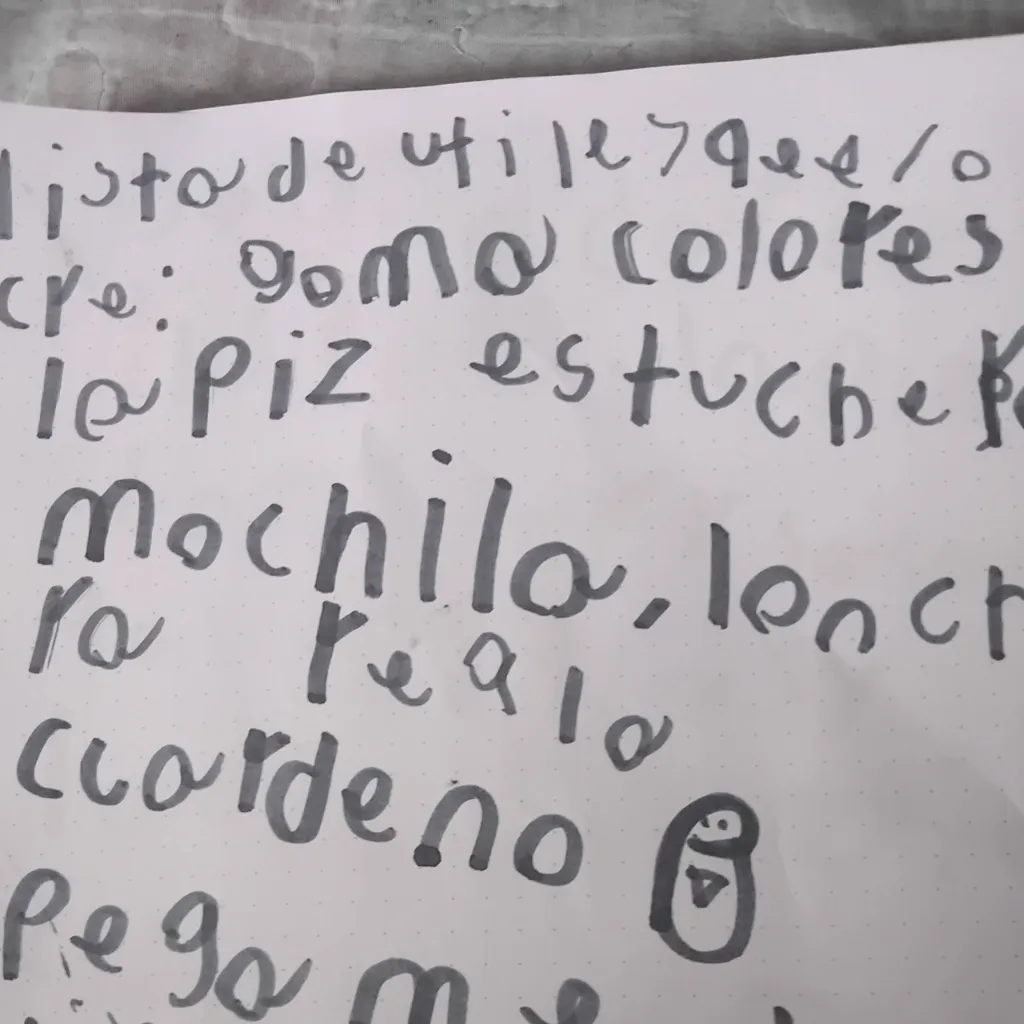 lista de utiles qee lo
cre: goma colores
lapiz estuche
mochila, lonch
ra regla
cuardeno
pegam